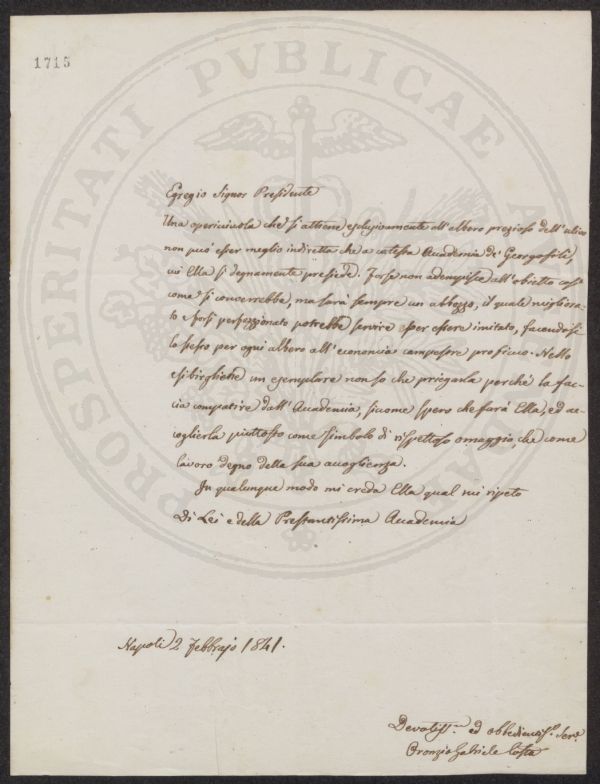 1715
PROSPERITATI PVBLICAE AVGENDAE
Egregio Signor Presidente
Una opericciuola che si attiene esclusivamente all'albero prezioso dell'ulivo
non può esser meglio indiretta che a cotesta Accademia de' Georgofili,
cui Ella sì degnamente presiede. Forse non adempisce all'obietto così
come si converrebbe, ma sarà sempre un abbozzo, il quale migliora-
to e forsi perfezzionato potrebbe servire esser imitato, facendosi
lo stesso per ogni albero all'economia campestre proficuo. Nello
esibirgliene un esemplare non so che priegarla perchè la fac-
cia compatire dall'Accademia, siccome spero che farà Ella, ed ac-
coglierla piuttosto come simbolo di rispettoso omaggio, che come
lavoro degno della sua accoglienza.
In qualunque modo mi creda Ella qual mi ripeto
Di Lei e della Prestantissima Accademia
Napoli 2 Febbrajo 1841.
Devotiss.º ed obbedientiss.º Serv.º
Oronzio Gabriele Costa